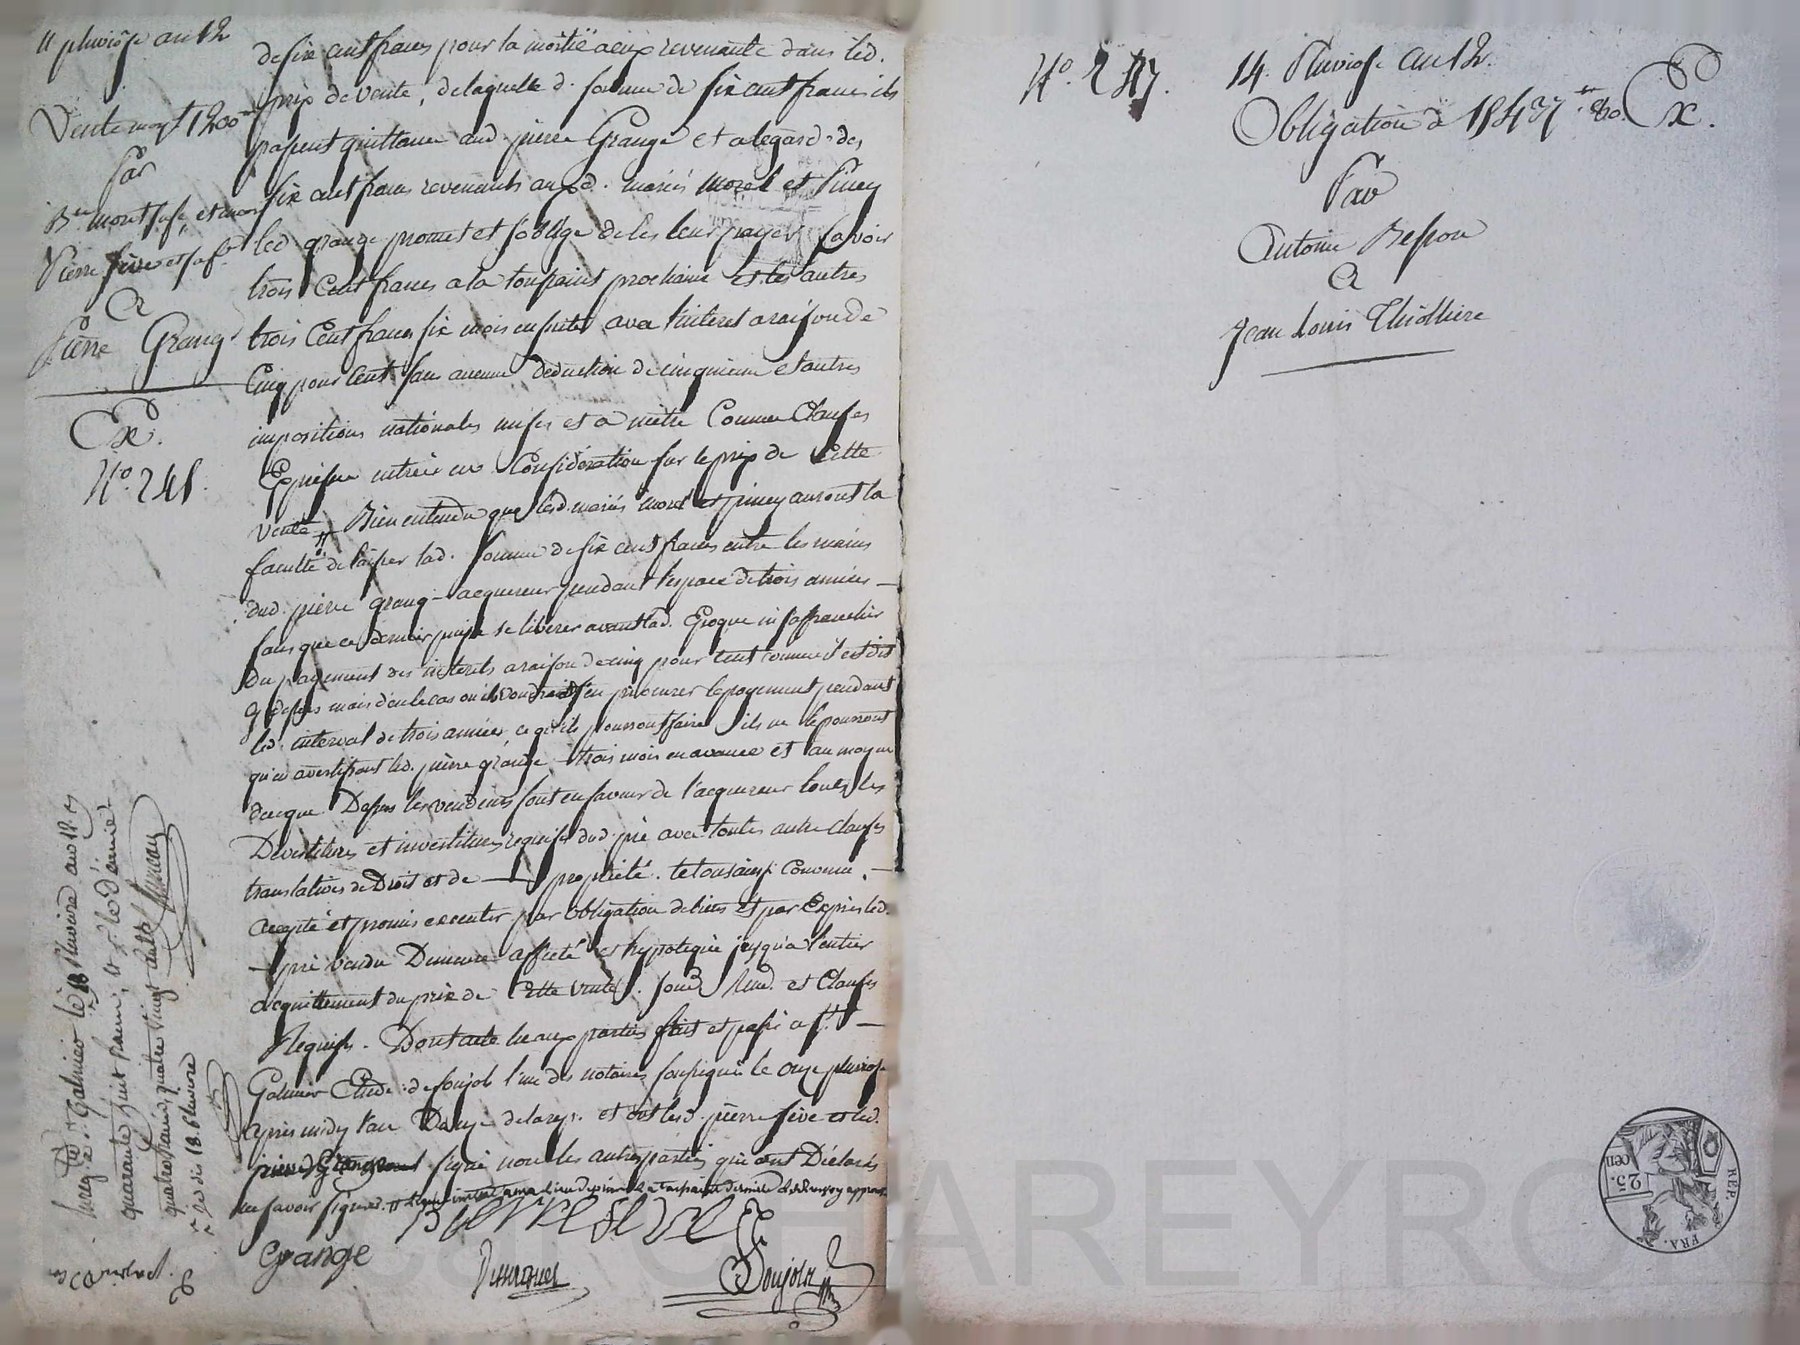 11 pluviôse an 12
Vente moy.t 1200
Par
B.te montsuse, et
Pierre seve et sa f.e
A
Pierre Grange
Ex.
N.o 245.
de six cent francs pour la moitié a eux revenante dans led.
prix de vente, de laquelle d. somme de six cent francs ils
passent quittance aud pierre Grange et a legard des
six cent francs revenants auxd. mariés morel et Piney
led grange promet et soblige de les leur payer savoir
trois Cent francs a la toussaint prochaine et les autres
trois Cent francs six mois ensuite avec linteret a raison de
Cinq pour Cent sans aucune deduction de cinquieme et autres
impositions nationales mises et a metre Comme Clauses
Expresse entrée en Considération sur le prix de Cette
Vente Bien entendu que lesd. mariés morel et piney auront la
faculté de laisser lad. somme de six cent francs entre les mains
dud. pierre grange acquereur pendant l'espace de trois années
sans que ce dernier puisse se liberer avant lad. Epoque ni saffranchir
Du payement des interets a raison de cinq pour Cent comme il est dit
cy dessus mais dans le cas ou ils voudroient sen procurer le payement pendant
led. interval de trois années, ce qu'ils pourront faire ils ne le pourront
qu'en avertissant led. pierre grange trois mois en avance et au moyen
dacque Dessus les vendeurs font en faveur de l'acquereur toutes les
Devestitures et investitures requises dud. pré avec toutes autres Clauses
translatives de Droit et de propriété. le tout ainsi Convenu,
accepté et promis executer par obligation de biens et par Exprès led.
pré vendu Demeure affecté et hypotequé jusqu'a l'entier
acquittement du prix de Cette Vente. Soud Rend. et Clauses
Requises. Dont acte lu aux parties fait et passé a s.t
Galmier Etude de soujols l'un des notaires soussignés le onze pluviose
après midy l'an Douze de la rep. et ont led. pierre seve et led.
pierre Grange signé non les autres parties qui ont Déclaré
ne savoir signer.
PIERRE SEVE
Grange
Soujols
Enreg. a S.t Galmier le 18 Pluviose an 12
quarante huit francs,
quatre francs quatre vingt
14. Pluviose an 12.
N.o 247.
Obligation de 18437.tt 80.
Ex.
Par
Antoine Besson
A
Jean Louis Thiolliere
REP. FRA.
25. cen
CHAREYRON